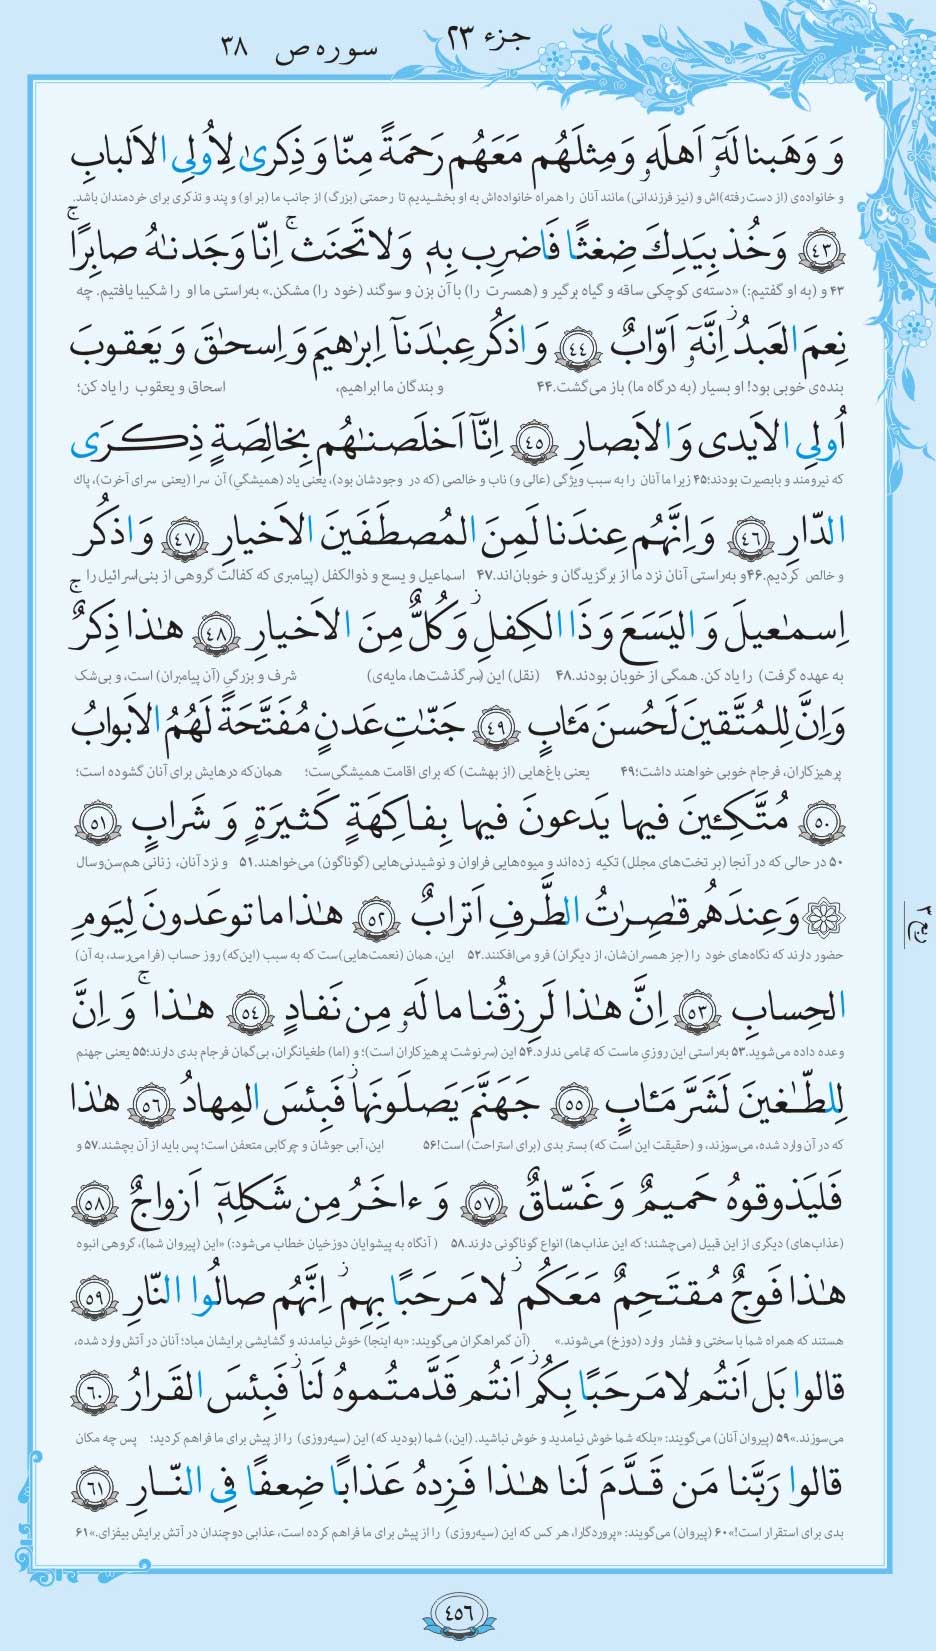 جزء ٢٣
سوره ص ٣٨
وَ وَهَبنا لَهُۥٓ اَهلَهُۥ وَ مِثلَهُم مَعَهُم رَحمَةً مِنّا وَ ذِكرىٰ لِاُولِى الاَلبابِ
و خانواده‌ی (از دست رفته)اش و (نیز فرزندانی) مانند آنان را همراه خانواده‌اش به او بخشیدیم تا رحمتی (بزرگ) از جانب ما (بر او) و پند و تذکری برای خردمندان باشد.
﴿٤٣﴾ وَ خُذ بِيَدِكَ ضِغثًا فَاضرِب بِهِۦ وَ لا تَحنَث ۚ اِنّا وَجَدنٰهُ صابِرًا ۚ
۴۳ و (به او گفتیم:) «دسته‌ی کوچکی ساقه و گیاه برگیر و (همسرت را) با آن بزن و سوگند (خود را) مشکن.» به‌راستی ما او را شکیبا یافتیم. چه
نِعمَ العَبدُ ۖ اِنَّهُۥٓ اَوّابٌ ﴿٤٤﴾ وَ اذكُر عِبٰدَنآ اِبرٰهيمَ وَ اِسحٰقَ وَ يَعقوبَ
بنده‌ی خوبی بود! او بسیار (به درگاه ما) باز می‌گشت.۴۴ و بندگان ما ابراهیم، اسحاق و یعقوب را یاد کن؛
اُولِى الاَيدى وَ الاَبصارِ ﴿٤٥﴾ اِنّآ اَخلَصنٰهُم بِخالِصَةٍ ذِكرَى
که نیرومند و بابصیرت بودند؛۴۵ زیرا ما آنان را به سبب ویژگی (عالی و) ناب و خالصی (که در وجودشان بود)، یعنی یاد (همیشگیِ) آن سرا (یعنی سرای آخرت)، پاک
الدّارِ ﴿٤٦﴾ وَ اِنَّهُم عِندَنا لَمِنَ المُصطَفَينَ الاَخيارِ ﴿٤٧﴾ وَ اذكُر
و خالص کردیم.۴۶و به‌راستی آنان نزد ما از برگزیدگان و خوبان‌اند.۴۷ اسماعیل و یسع و ذوالکفل (پیامبری که کفالت گروهی از بنی‌اسرائیل را
اِسمٰعيلَ وَ اليَسَعَ وَ ذَا الكِفلِ ۖ وَ كُلٌّ مِنَ الاَخيارِ ﴿٤٨﴾ هٰذا ذِكرٌ ۚ
به عهده گرفت) را یاد کن. همگی از خوبان بودند.۴۸ (نقل) این (سرگذشت‌ها، مایه‌ی) شرف و بزرگیِ (آن پیامبران) است، و بی‌شک
وَ اِنَّ لِلمُتَّقينَ لَحُسنَ مَـٔابٍ ﴿٤٩﴾ جَنّٰتِ عَدنٍ مُفَتَّحَةً لَهُمُ الاَبوابُ
پرهیزکاران، فرجام خوبی خواهند داشت؛۴۹ یعنی باغ‌هایی (از بهشت) که برای اقامت همیشگی‌ست؛ همان‌که درهایش برای آنان گشوده است؛
﴿٥٠﴾ مُتَّكِـئينَ فيها يَدعونَ فيها بِفاكِهَةٍ كَثيرَةٍ وَ شَرابٍ ﴿٥١﴾
۵۰ در حالی که در آنجا (بر تخت‌های مجلل) تکیه زده‌اند و میوه‌هایی فراوان و نوشیدنی‌هایی (گوناگون) می‌خواهند.۵۱ و نزد آنان، زنانی هم‌سن‌وسال
وَ عِندَهُم قٰصِرٰتُ الطَّرفِ اَترابٌ ﴿٥٢﴾ هٰذا ما توعَدونَ لِيَومِ
حضور دارند که نگاه‌های خود را (جز همسران‌شان، از دیگران) فرو می‌افکنند.۵۲ این، همان (نعمت‌هایی)ست که به سبب (این‌که) روز حساب (فرا می‌رسد، به آن)
ربع ٣
الحِسابِ ﴿٥٣﴾ اِنَّ هٰذا لَرِزقُنا ما لَهُۥ مِن نَفادٍ ﴿٥٤﴾ هٰذا ۚ وَ اِنَّ
وعده داده می‌شوید.۵۳ به‌راستی این روزیِ ماست که تمامی ندارد.۵۴ این (سرنوشت پرهیزکاران است)؛ و (اما) طغیانگران، بی‌گمان فرجام بدی دارند؛۵۵ یعنی جهنم
لِلطّٰغينَ لَشَرَّ مَـٔابٍ ﴿٥٥﴾ جَهَنَّمَ يَصلَونَها ۖ فَبِئسَ المِهادُ ﴿٥٦﴾ هٰذا
که در آن وارد شده، می‌سوزند، و (حقیقت این است که) بستر بدی (برای استراحت) است!۵۶ این، آبی جوشان و چرکابی متعفن است؛ پس باید از آن بچشند.۵۷ و
فَليَذوقوهُ حَميمٌ وَ غَسّاقٌ ﴿٥٧﴾ وَ ءاخَرُ مِن شَكلِهِۦٓ اَزواجٌ ﴿٥٨﴾
(عذاب‌های) دیگری از این قبیل (می‌چشند؛ که این عذاب‌ها) انواع گوناگونی دارند.۵۸ (آنگاه به پیشوایان دوزخیان خطاب می‌شود:) «این (پیروان شما)، گروهی انبوه
هٰذا فَوجٌ مُقتَحِمٌ مَعَكُم ۖ لا مَرحَبًا بِهِم ۖ اِنَّهُم صالُوا النّارِ ﴿٥٩﴾
هستند که همراه شما با سختی و فشار وارد (دوزخ) می‌شوند.» (آن گمراهگران می‌گویند: «به اینجا) خوش نیامدند و گشایشی برایشان مباد؛ آنان در آتش وارد شده،
قالوا بَل اَنتُم لا مَرحَبًا بِكُم ۖ اَنتُم قَدَّمتُموهُ لَنا ۖ فَبِئسَ القَرارُ ﴿٦٠﴾
می‌سوزند.»۵۹ (پیروان آنان) می‌گویند: «بلکه شما خوش نیامدید و خوش نباشید. (این،) شما (بودید که) این (سیه‌روزی) را از پیش برای ما فراهم کردید؛ پس چه مکان
قالوا رَبَّنا مَن قَدَّمَ لَنا هٰذا فَزِدهُ عَذابًا ضِعفًا فِى النّارِ ﴿٦١﴾
بدی برای استقرار است!»۶۰ (پیروان) می‌گویند: «پروردگارا، هر کس که این (سیه‌روزی) را از پیش برای ما فراهم کرده است، عذابی دوچندان در آتش برایش بیفزای.»۶۱
٤٥٦